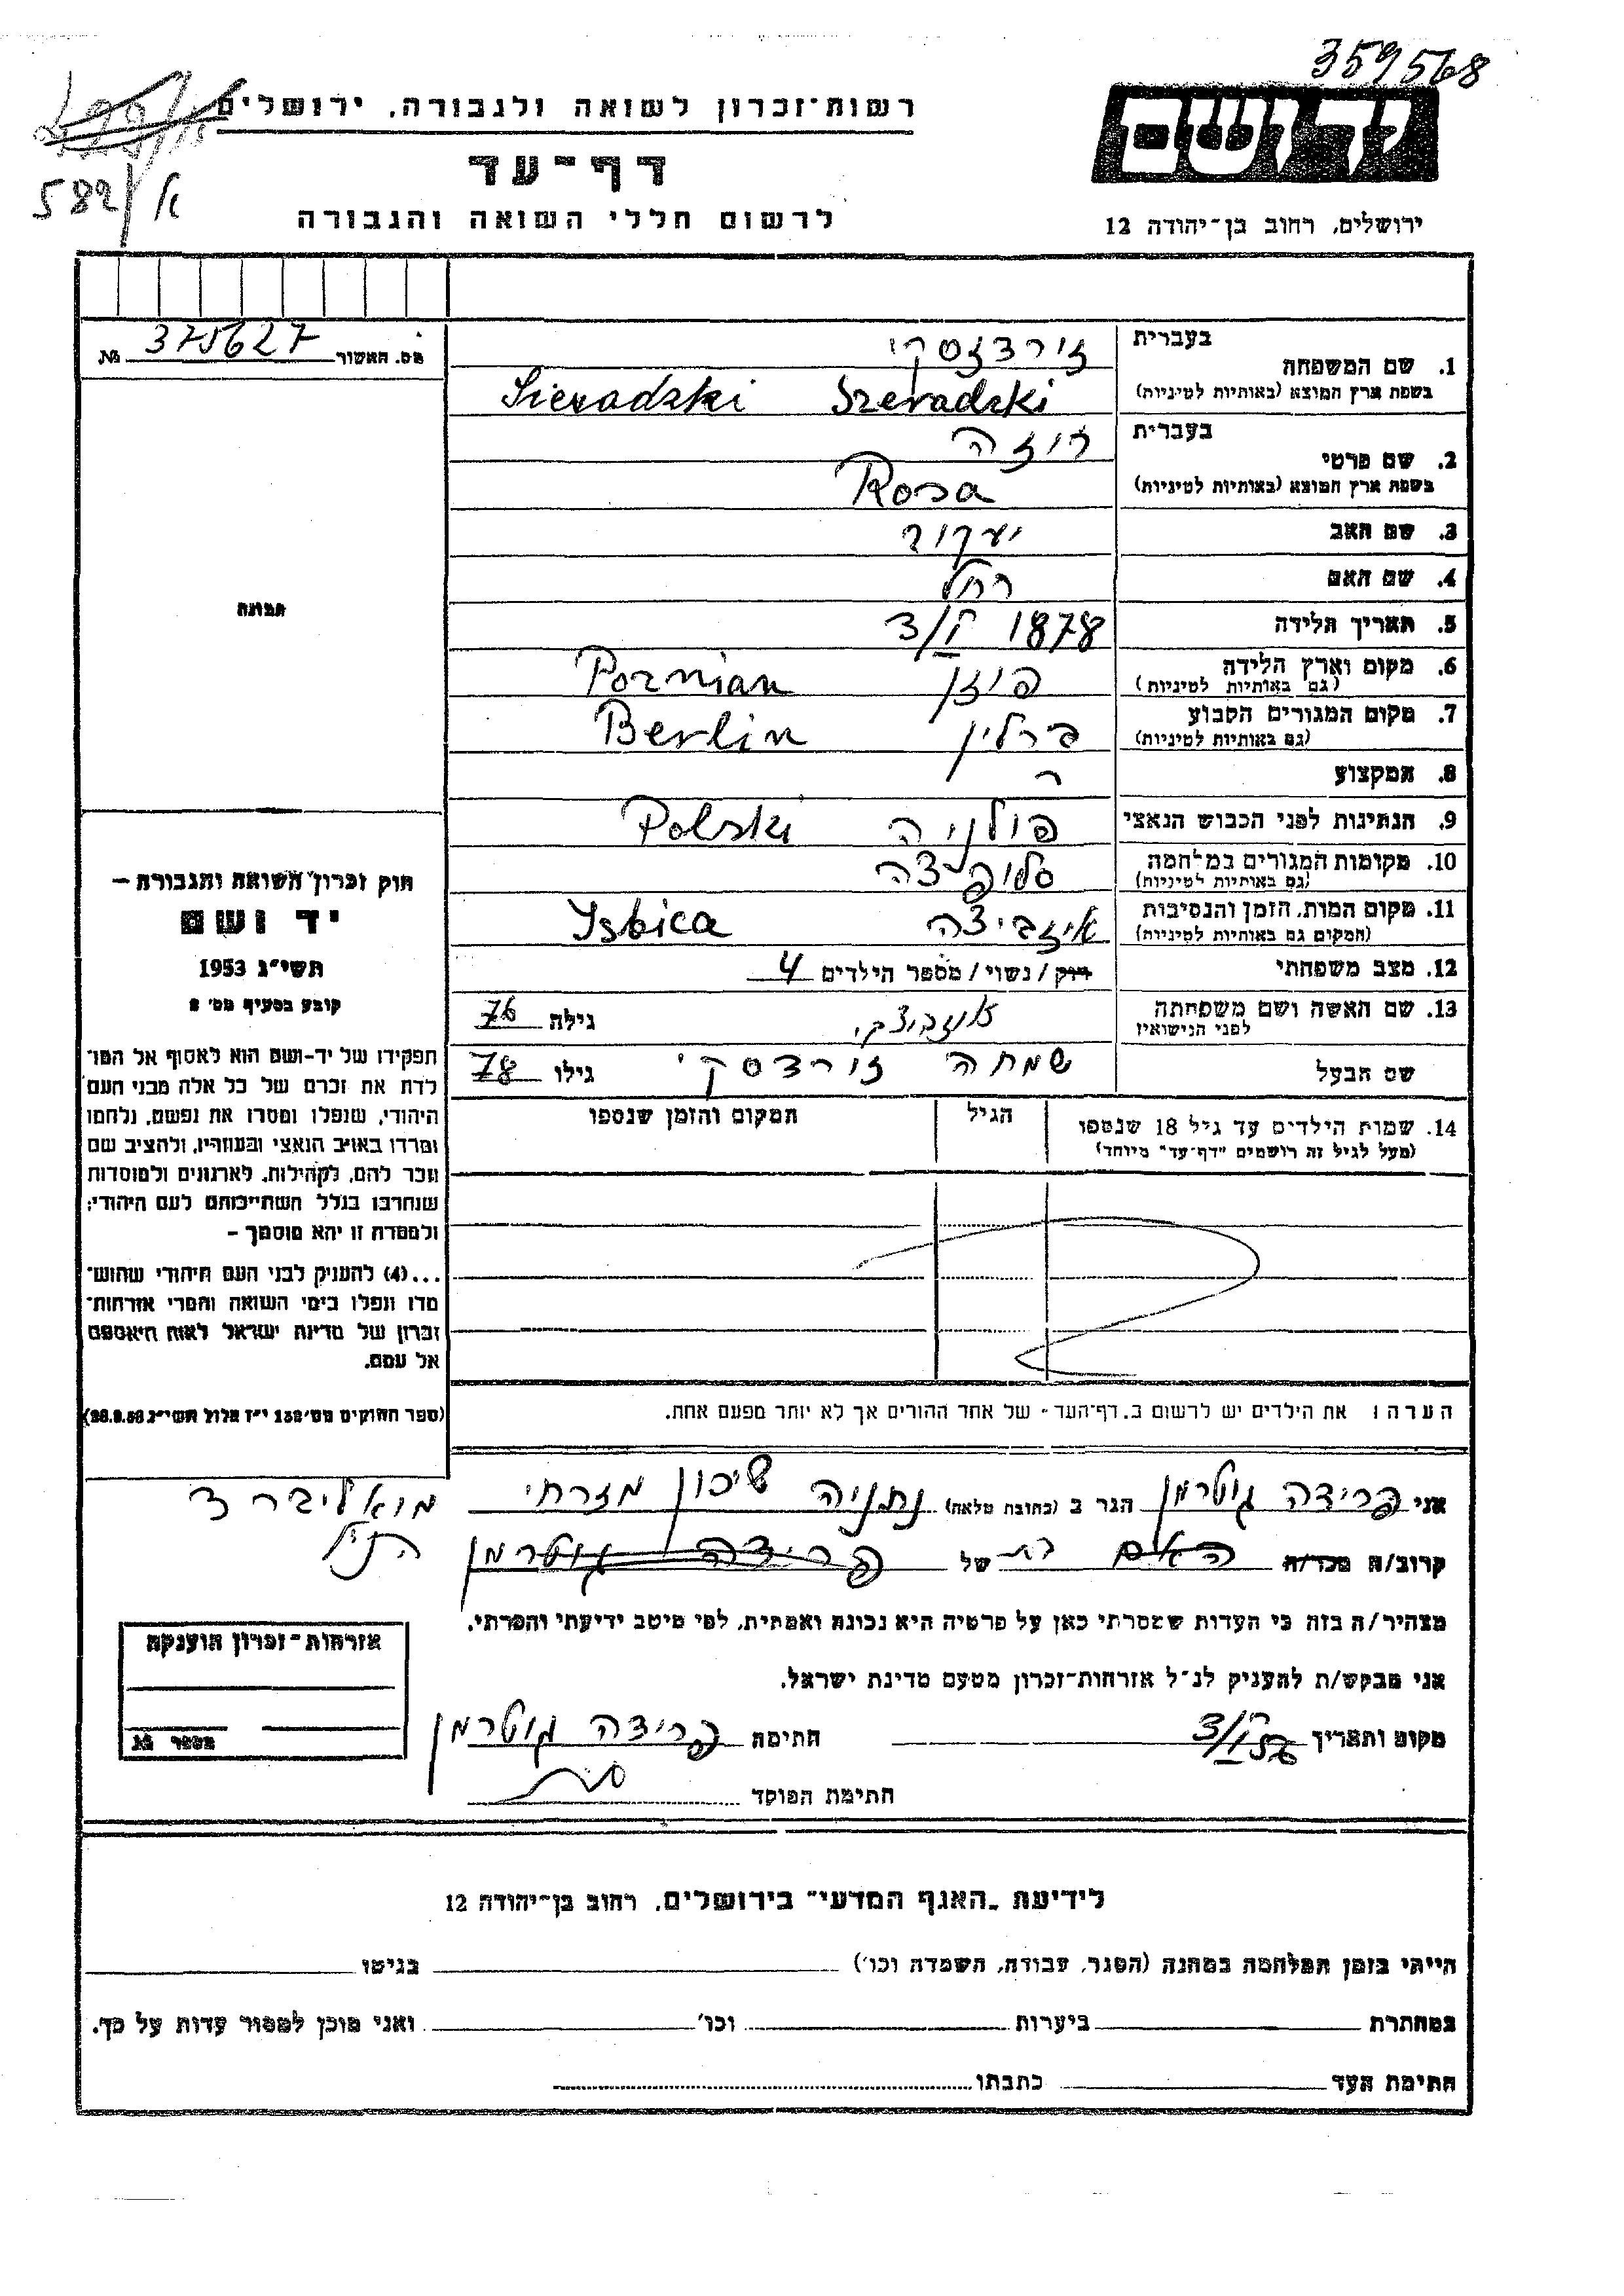 359568
יד ושם
ירושלים, רחוב בן-יהודה 12
רשות-זכרון לשואה ולגבורה, ירושלים
דף-עד
לרשום חללי השואה והגבורה
582/א
מס. האשור 375627 №
תמונה
בעברית
1. שם המשפחה
בשפת ארץ המוצא (באותיות לטיניות)
Sieradzki Szeradzki
בעברית רוזה
2. שם פרטי
בשפת ארץ המוצא (באותיות לטיניות)
Rosa
3. שם האב יעקוב
4. שם האם רחל
5. תאריך הלידה 3/V 1878
6. מקום וארץ הלידה פוזן Poznian
(גם באותיות לטיניות)
7. מקום המגורים הקבוע ברלין Berlin
(גם באותיות לטיניות)
8. המקצוע
9. הנתינות לפני הכבוש הנאצי פולניה Polski
10. מקומות המגורים במלחמה
(גם באותיות לטיניות)
11. מקום המות, הזמן והנסיבות איזביצה Isbica
(המקום גם באותיות לטיניות)
12. מצב משפחתי רוק / נשוי / מספר הילדים 4
13. שם האשה ושם משפחתה גילה 76
לפני הנישואין
שם הבעל שמחה זירדסקי גילו 78
14. שמות הילדים עד גיל 18 שנספו הגיל המקום והזמן שנספו
(מעל לגיל זה רושמים "דף-עד" מיוחד)
הערה: את הילדים יש לרשום ב. דף-העד - של אחד ההורים אך לא יותר מפעם אחת.
חוק זכרון השואה והגבורה –
יד ושם
תשי"ג 1953
קובע בסעיף מס' 2
תפקידו של יד-ושם הוא לאסוף אל המו-
לדת את זכרם של כל אלה מבני העם
היהודי, שנפלו ומסרו את נפשם, נלחמו
ומרדו באויב הנאצי ובעוזריו, ולהציב שם
וזכר להם, לקהילות, לארגונים ולמוסדות
שנחרבו בגלל השתייכותם לעם היהודי;
ולמטרה זו יהא מוסמך –
...(4) להעניק לבני העם היהודי שהוש-
מדו ונפלו בימי השואה והמרי אזרחות-
זכרון של מדינת ישראל לאות היאספם
אל עמם.
(ספר החוקים מס' 132 י"ז אלול תשי"ג 28.8.53)
אני פרידה גוטרמן הגר ב (כתובת מלאה) נתניה שיכון מזרחי
קרוב/ה מכר/ה האם בת של פרידה גוטרמן
מצהיר/ה בזה כי העדות שמסרתי כאן על פרטיה היא נכונה ואמתית, לפי מיטב ידיעתי והכרתי.
אני מבקש/ת להעניק לנ"ל אזרחות-זכרון מטעם מדינת ישראל.
מקום ותאריך חתימה פרידה גוטרמן
חתימת הפוקד
אזרחות-זכרון הוענקה
מספר №
לידיעת „האגף המדעי" בירושלים, רחוב בן-יהודה 12
הייתי בזמן המלחמה במחנה (הסגר, עבודה, השמדה וכו') בגיטו
במחתרת ביערות וכו' ואני מוכן למסור עדות על כך.
חתימת העד כתבתו